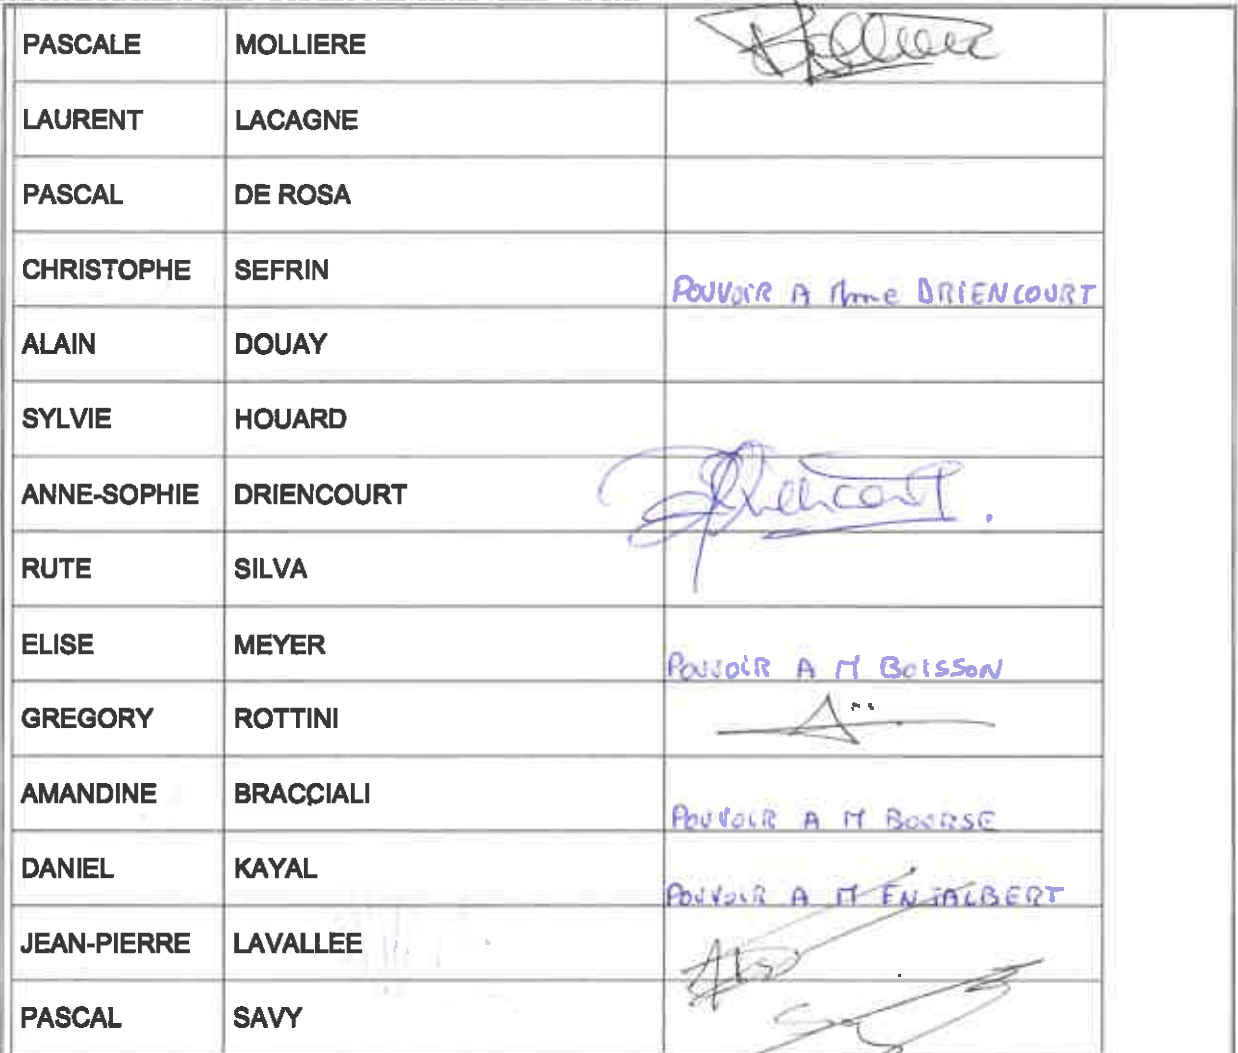 PASCALE MOLLIERE
LAURENT LACAGNE
PASCAL DE ROSA
CHRISTOPHE SEFRIN POUVOIR A Mme DRIENCOURT
ALAIN DOUAY
SYLVIE HOUARD
ANNE-SOPHIE DRIENCOURT
RUTE SILVA
ELISE MEYER POUVOIR A M BOISSON
GREGORY ROTTINI
AMANDINE BRACCIALI POUVOIR A M BOURSE
DANIEL KAYAL POUVOIR A M ENJALBERT
JEAN-PIERRE LAVALLEE
PASCAL SAVY